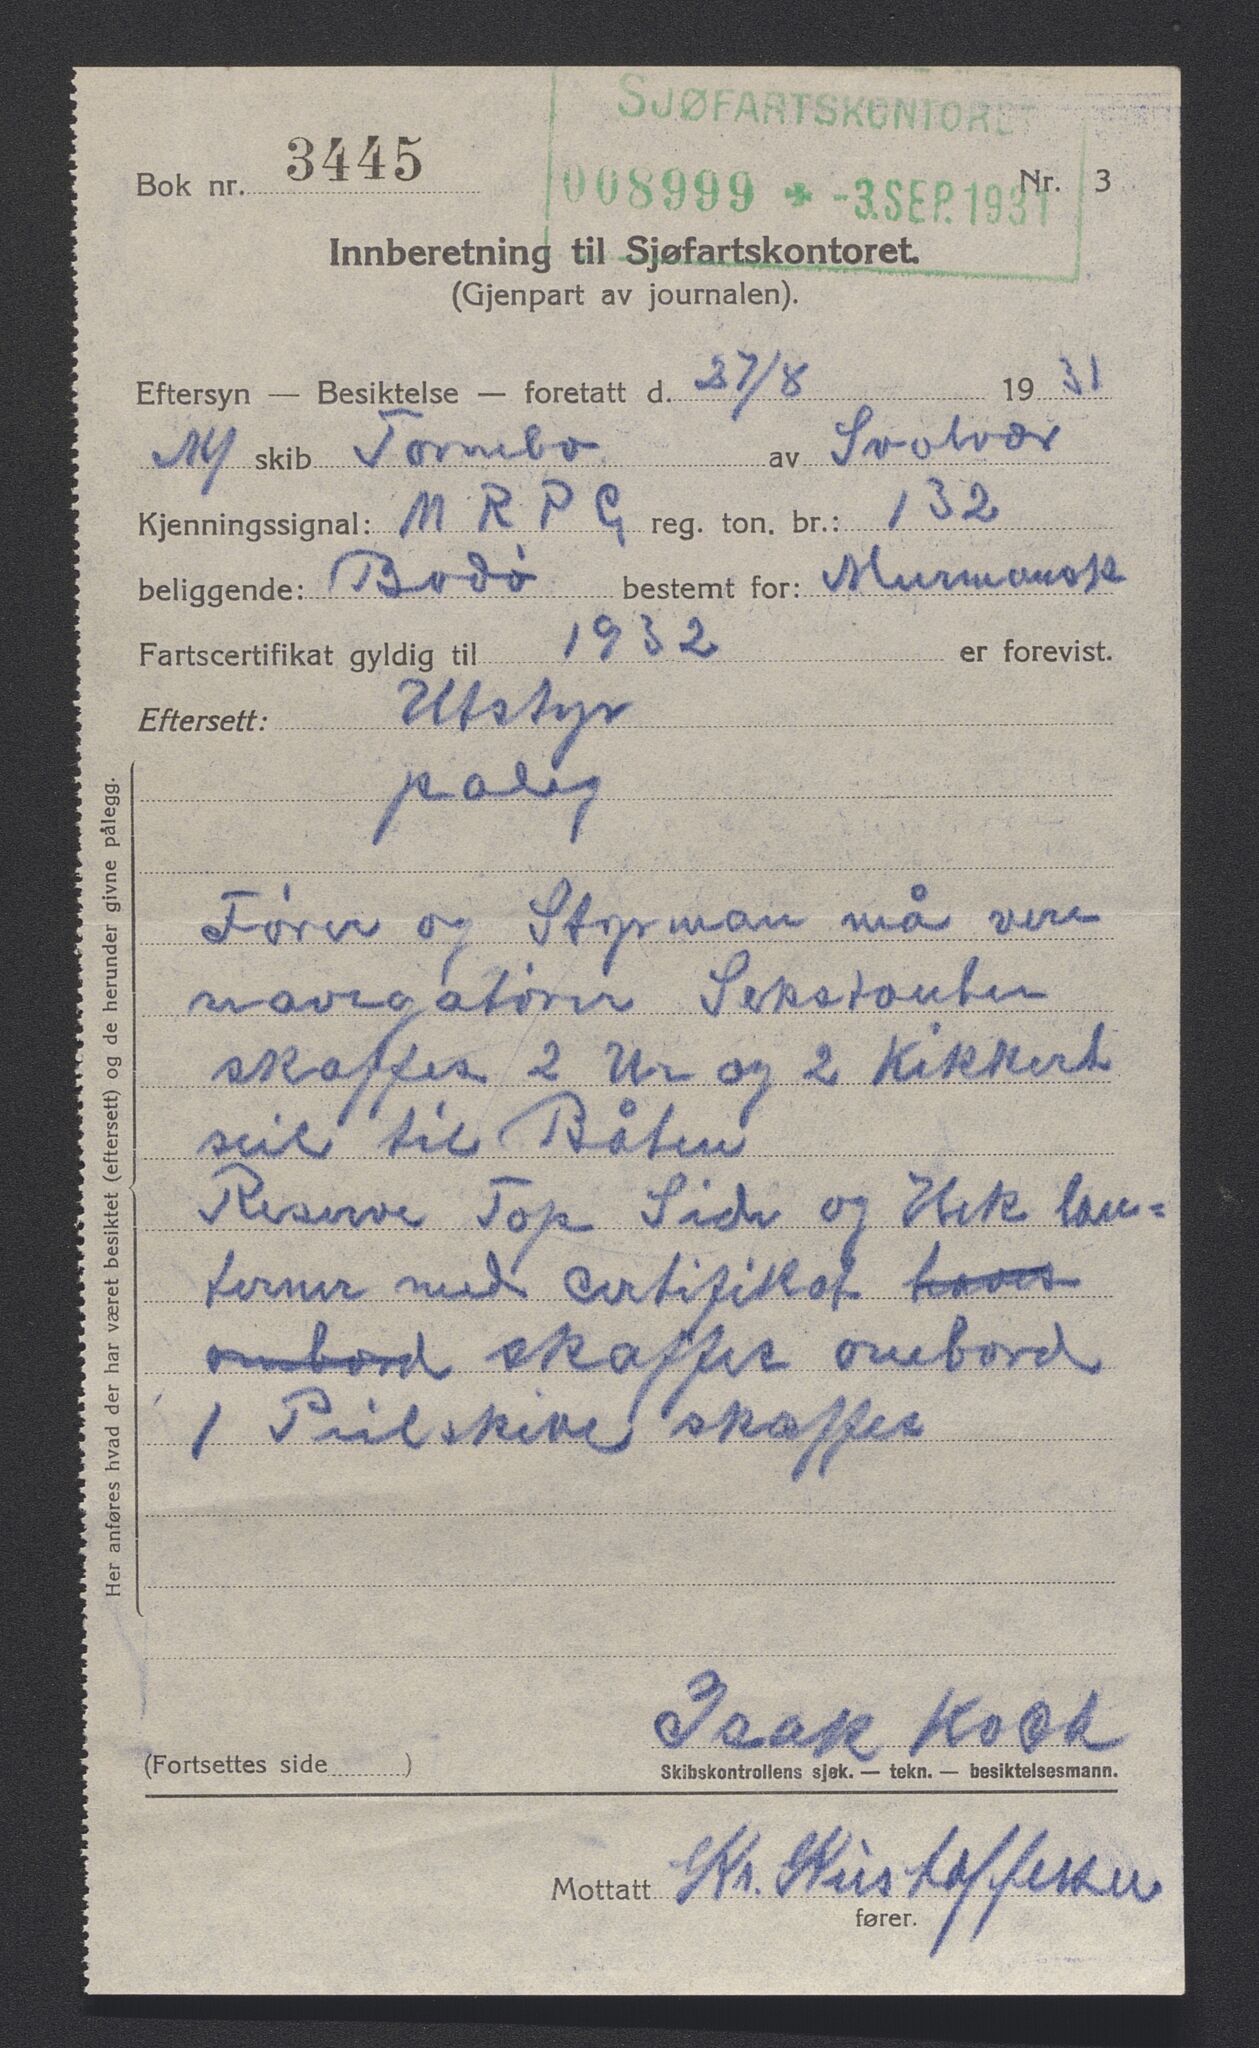 SJØFARTSKONTORET
008999 * -3.SEP.1931
Bok nr. 3445 Nr. 3
Innberetning til Sjøfartskontoret.
(Gjenpart av journalen).
Eftersyn — Besiktelse — foretatt d. 27/8 1931
M/ skib Tornebo av Svolvær
Kjenningssignal: M R P G reg. ton. br.: 132
beliggende: Bodø bestemt for: Murmansk
Fartscertifikat gyldig til 1932 er forevist.
Eftersett: Utstyr
paleg
Fører og Styrman må vere
navigatører Sekstanten
skaffes 2 Ur og 2 Kikkert
seil til Båten
Reserve Top Side og Hek lan=
terner med certifikat haves
ombord skaffes ombord
1 Peilskive skaffes
Her anføres hvad der har været besiktet (eftersett) og de herunder givne pålegg.
Isak Koch
(Fortsettes side )
Skibskontrollens sjøk. — tekn. — besiktelsesmann.
Mottatt Kr. Kristoffersen
fører.